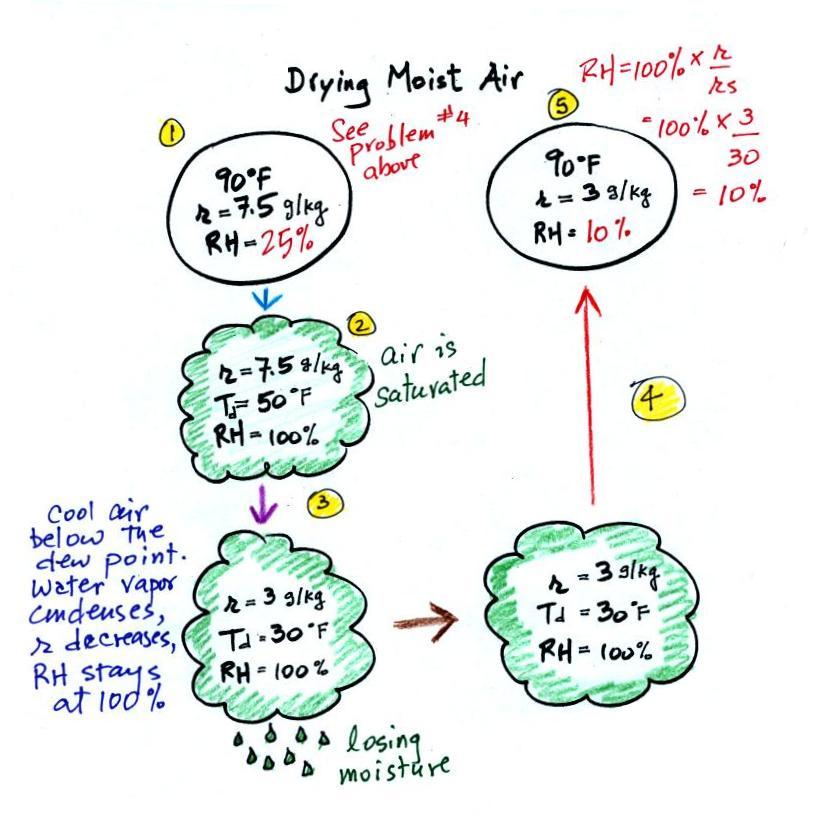 Drying Moist Air
1
90°F
r = 7.5 g/kg
RH = 25%
See
problem #4
above
5
RH = 100% × r/rs
= 100% × 3/30
= 10%
90°F
r = 3 g/kg
RH = 10%
2
r = 7.5 g/kg
Td = 50°F
RH = 100%
air is
saturated
3
Cool air
below the
dew point.
Water vapor
condenses,
r decreases,
RH stays
at 100%
r = 3 g/kg
Td = 30°F
RH = 100%
losing
moisture
4
r = 3 g/kg
Td = 30°F
RH = 100%